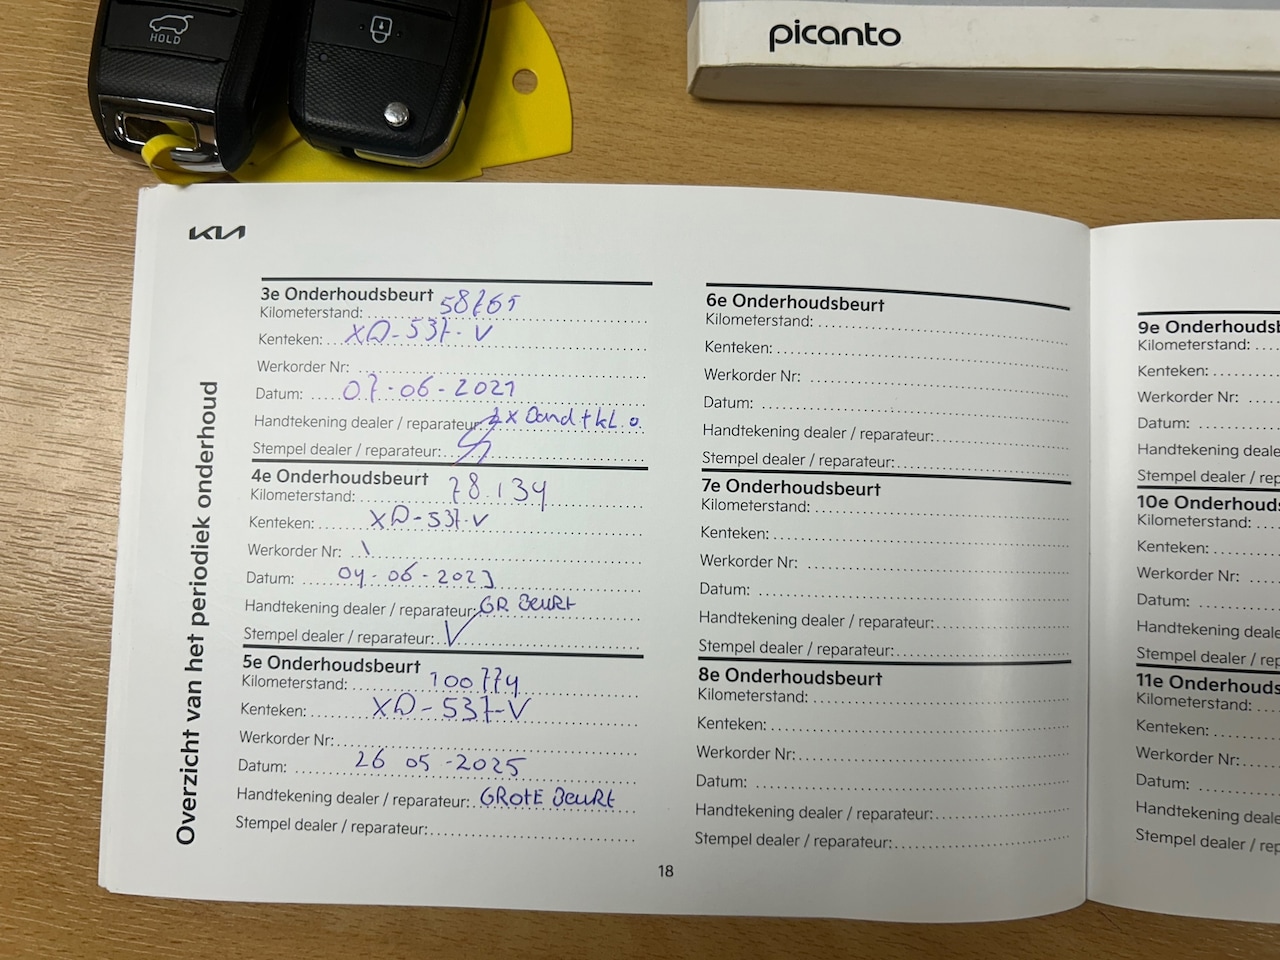 HOLD
picanto
KIA
Overzicht van het periodiek onderhoud
3e Onderhoudsbeurt
Kilometerstand: 58765
Kenteken: XD-537-V
Werkorder Nr:
Datum: 07-06-2021
Handtekening dealer / reparateur: 2x Band + kl. o.
Stempel dealer / reparateur:
4e Onderhoudsbeurt
Kilometerstand: 78.134
Kenteken: XD-537-V
Werkorder Nr: \
Datum: 04-06-2023
Handtekening dealer / reparateur: GR BeuRt
Stempel dealer / reparateur:
5e Onderhoudsbeurt
Kilometerstand: 100774
Kenteken: XD-537-V
Werkorder Nr:
Datum: 26 05-2025
Handtekening dealer / reparateur: GROtE BeuRt
Stempel dealer / reparateur:
6e Onderhoudsbeurt
Kilometerstand:
Kenteken:
Werkorder Nr:
Datum:
Handtekening dealer / reparateur:
Stempel dealer / reparateur:
7e Onderhoudsbeurt
Kilometerstand:
Kenteken:
Werkorder Nr:
Datum:
Handtekening dealer / reparateur:
Stempel dealer / reparateur:
8e Onderhoudsbeurt
Kilometerstand:
Kenteken:
Werkorder Nr:
Datum:
Handtekening dealer / reparateur:
Stempel dealer / reparateur:
18
9e Onderhoudsb
Kilometerstand:
Kenteken:
Werkorder Nr:
Datum:
Handtekening deale
Stempel dealer / rep
10e Onderhouds
Kilometerstand:
Kenteken:
Werkorder Nr:
Datum:
Handtekening deale
Stempel dealer / rep
11e Onderhouds
Kilometerstand:
Kenteken:
Werkorder Nr:
Datum:
Handtekening deale
Stempel dealer / rep